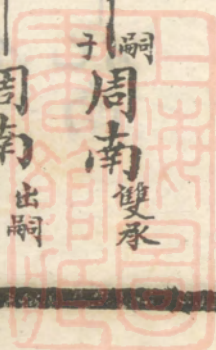 嗣子
周南
雙承
周南
出嗣